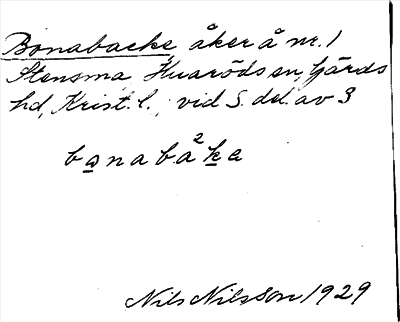 Bonabacke, åker å nr. 1
Stensma, Huaröds sn, Gärds
hd, Krist. l., vid S. del. av 3
bo̲nabà²k̲a
Nils Nilsson 1929